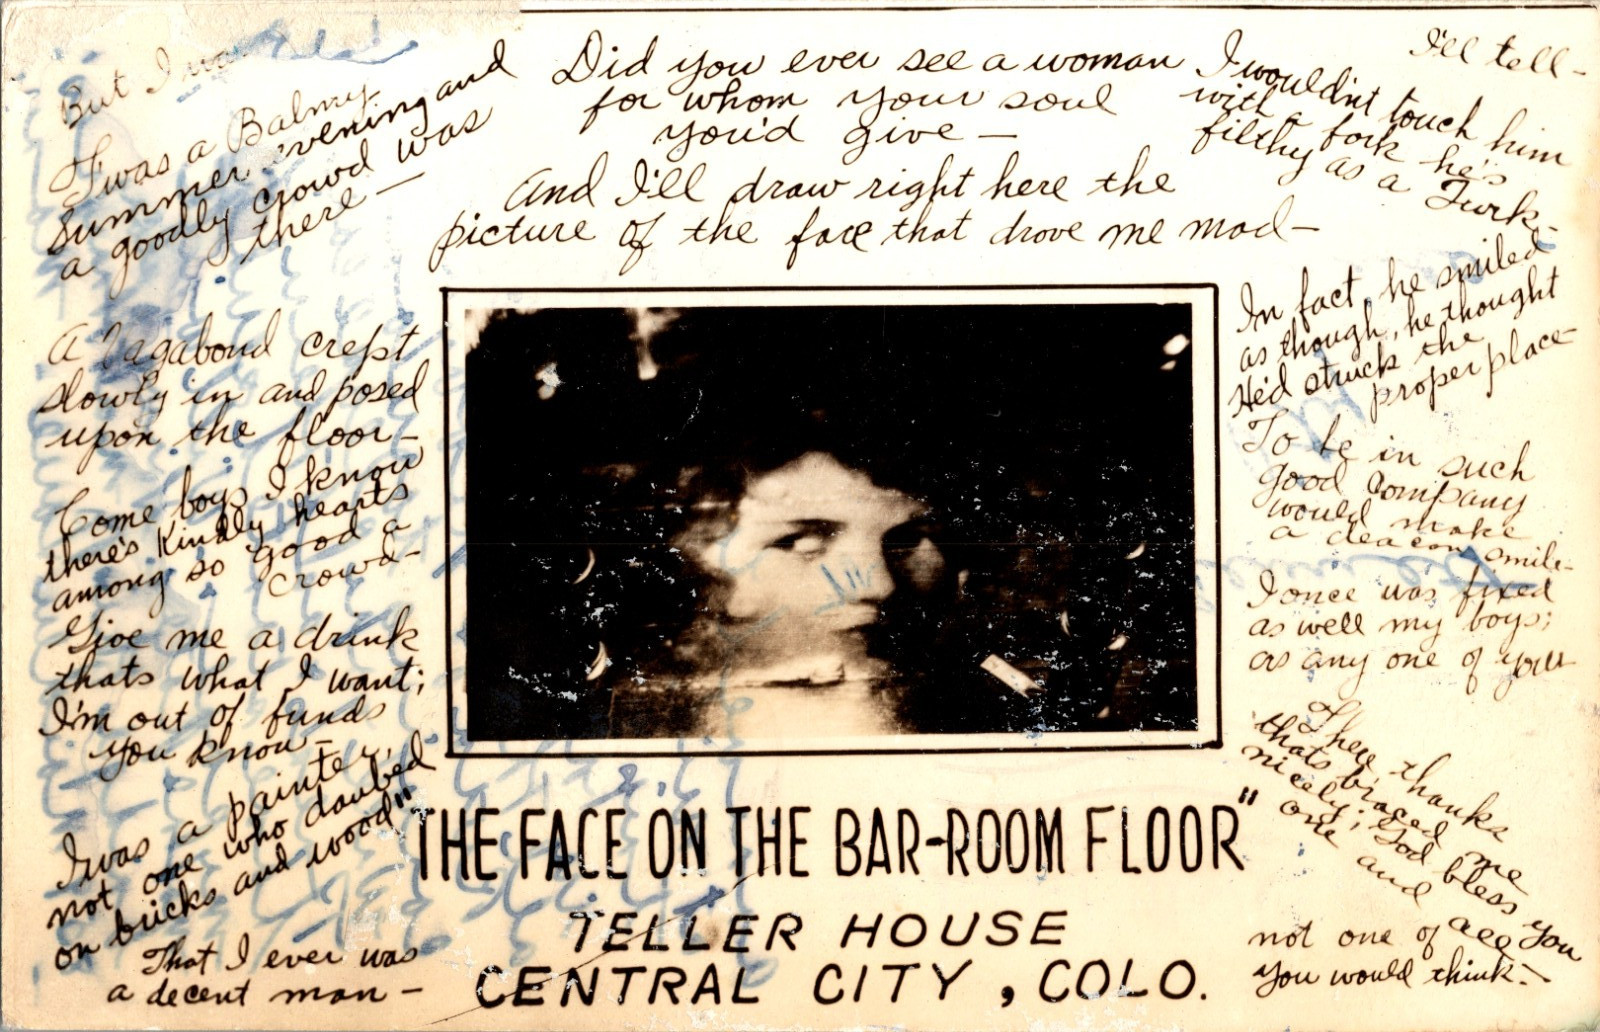 But I was
Twas a Balmy
Summer evening and
a goodly crowd was
there —
A Vagabond crept
slowly in and posed
upon the floor —
Come boys I know
there's Kindly hearts
among so good a
crowd —
Give me a drink
thats what I want;
I'm out of funds
you know —
I was a painter,
not one who daubed
on bricks and wood"
That I ever was
a decent man —
Did you ever see a woman
for whom your soul
you'd give —
And I'll draw right here the
picture of the face that drove me mad —
I'll tell —
I wouldn't touch him
with a fork he's
filthy as a Turk —
In fact, he smiled
as though, he thought
He'd struck the
proper place —
To be in such
good company
would make
a deacon smile —
I once was fixed
as well my boys;
as any one of you
There thanks
thats braced me
nicely; God bless you
one and all
not one of you
you would think —
"THE FACE ON THE BAR-ROOM FLOOR"
TELLER HOUSE
CENTRAL CITY, COLO.